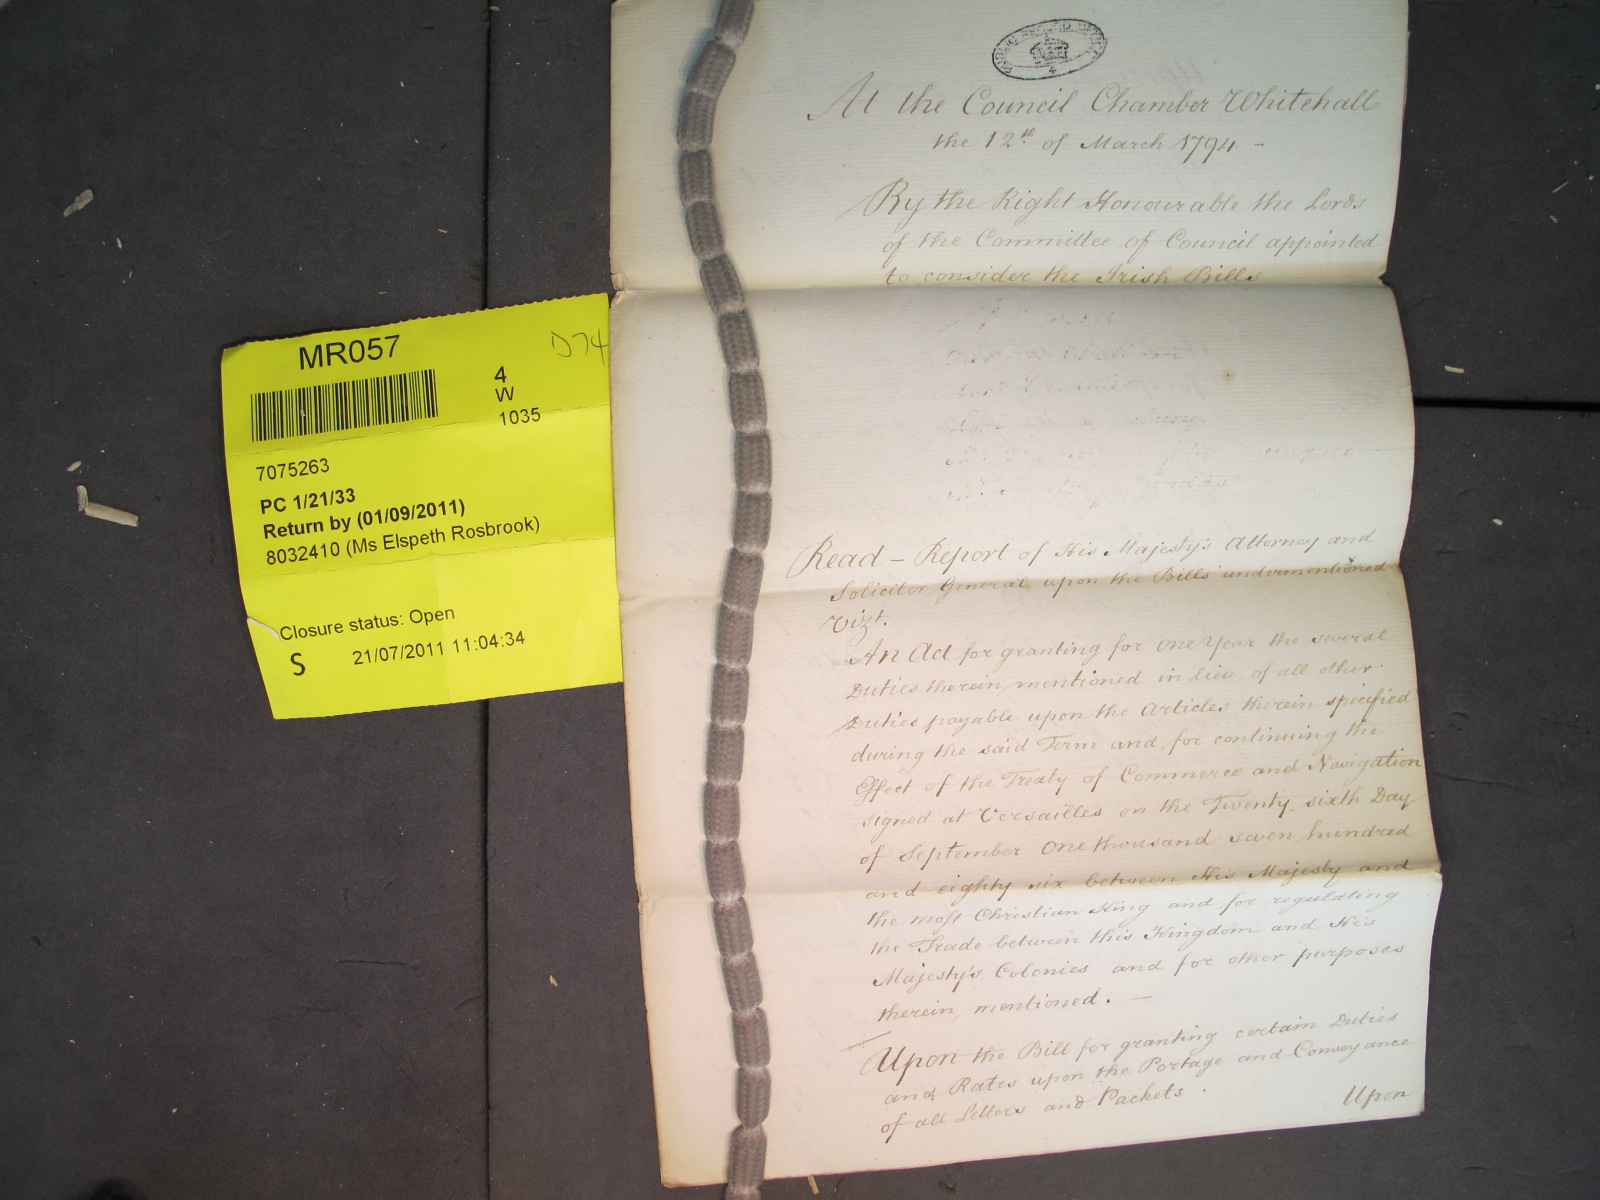 PUBLIC RECORD OFFICE
At the Council Chamber Whitehall
the 12th of March 1794 -
By the Right Honourable the Lords
of the Committee of Council appointed
to consider the Irish Bills
MR057
D74
4
W
1035
7075263
PC 1/21/33
Return by (01/09/2011)
8032410 (Ms Elspeth Rosbrook)
Closure status: Open
S 21/07/2011 11:04:34
Read - Report of His Majesty's Attorney and
Solicitor General upon the Bills undermentioned
Vizt.
An Act for granting for one Year the several
Duties therein mentioned in lieu of all other
Duties payable upon the Articles therein specified
during the said Term and for continuing the
Effect of the Treaty of Commerce and Navigation
signed at Versailles on the Twenty sixth Day
of September One thousand seven hundred
and eighty six between His Majesty and
the most Christian King and for regulating
the Trade between this Kingdom and His
Majesty's Colonies and for other purposes
therein mentioned. -
Upon the Bill for granting certain Duties
and Rates upon the Portage and Conveyance
of all Letters and Packets.
Upon